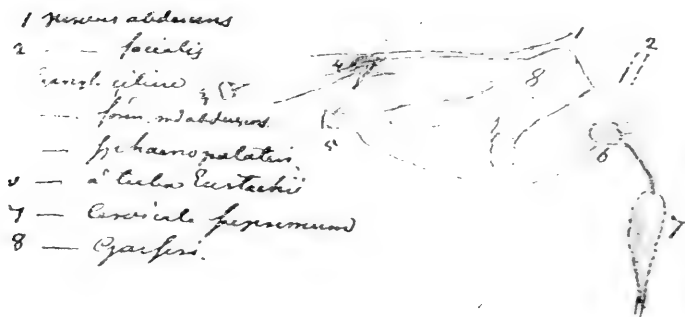 1 nervus abducens
2 - - facialis
Gangl. ciliare
— form. n. abducens
— sphaenopalatin.
— a tuba Eustachii
7 — Cervicale supremum
8 — Gasseri.
1
2
3
4
5
6
7
8